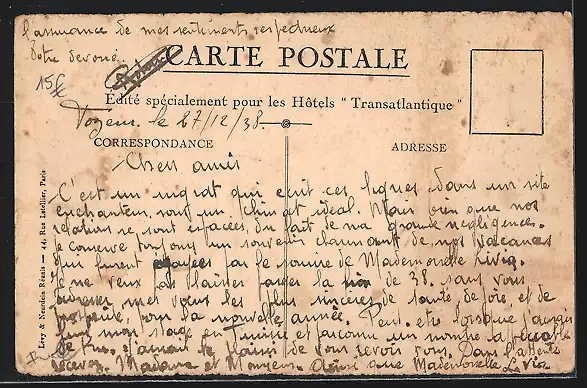 l'assurance de mes sentiments respectueux
Votre devoué
15f
CARTE POSTALE
Edité spécialement pour les Hôtels "Transatlantique"
Tozeur le 27/12/38.
CORRESPONDANCE
ADRESSE
Chers amis
C'est un ingrat qui ecrit ces lignes dans un site
enchanteur, sous un climat idéal. Mais bien que nos
relations se sont espacées, du fait de ma grande negligence.
Je conserve toujours un souvenir charmant de nos vacances
qui furent par le sourire de Mademoiselle
Je ne veux pas laisser passer la fin de 38. sans vous
adresser mes voeux les plus sinceres de santé de joie, et de
pour la nouvelle année. Peut etre lorsque j'aurais
mon stage en Tunisie et un nombre
de j'aurais le plaisir de vous revoir tous. Dans l'attente
recevez Madame et Monsieur ainsi que Mademoiselle
Lévy & Neurdein Réunis — 44, Rue Letellier, Paris